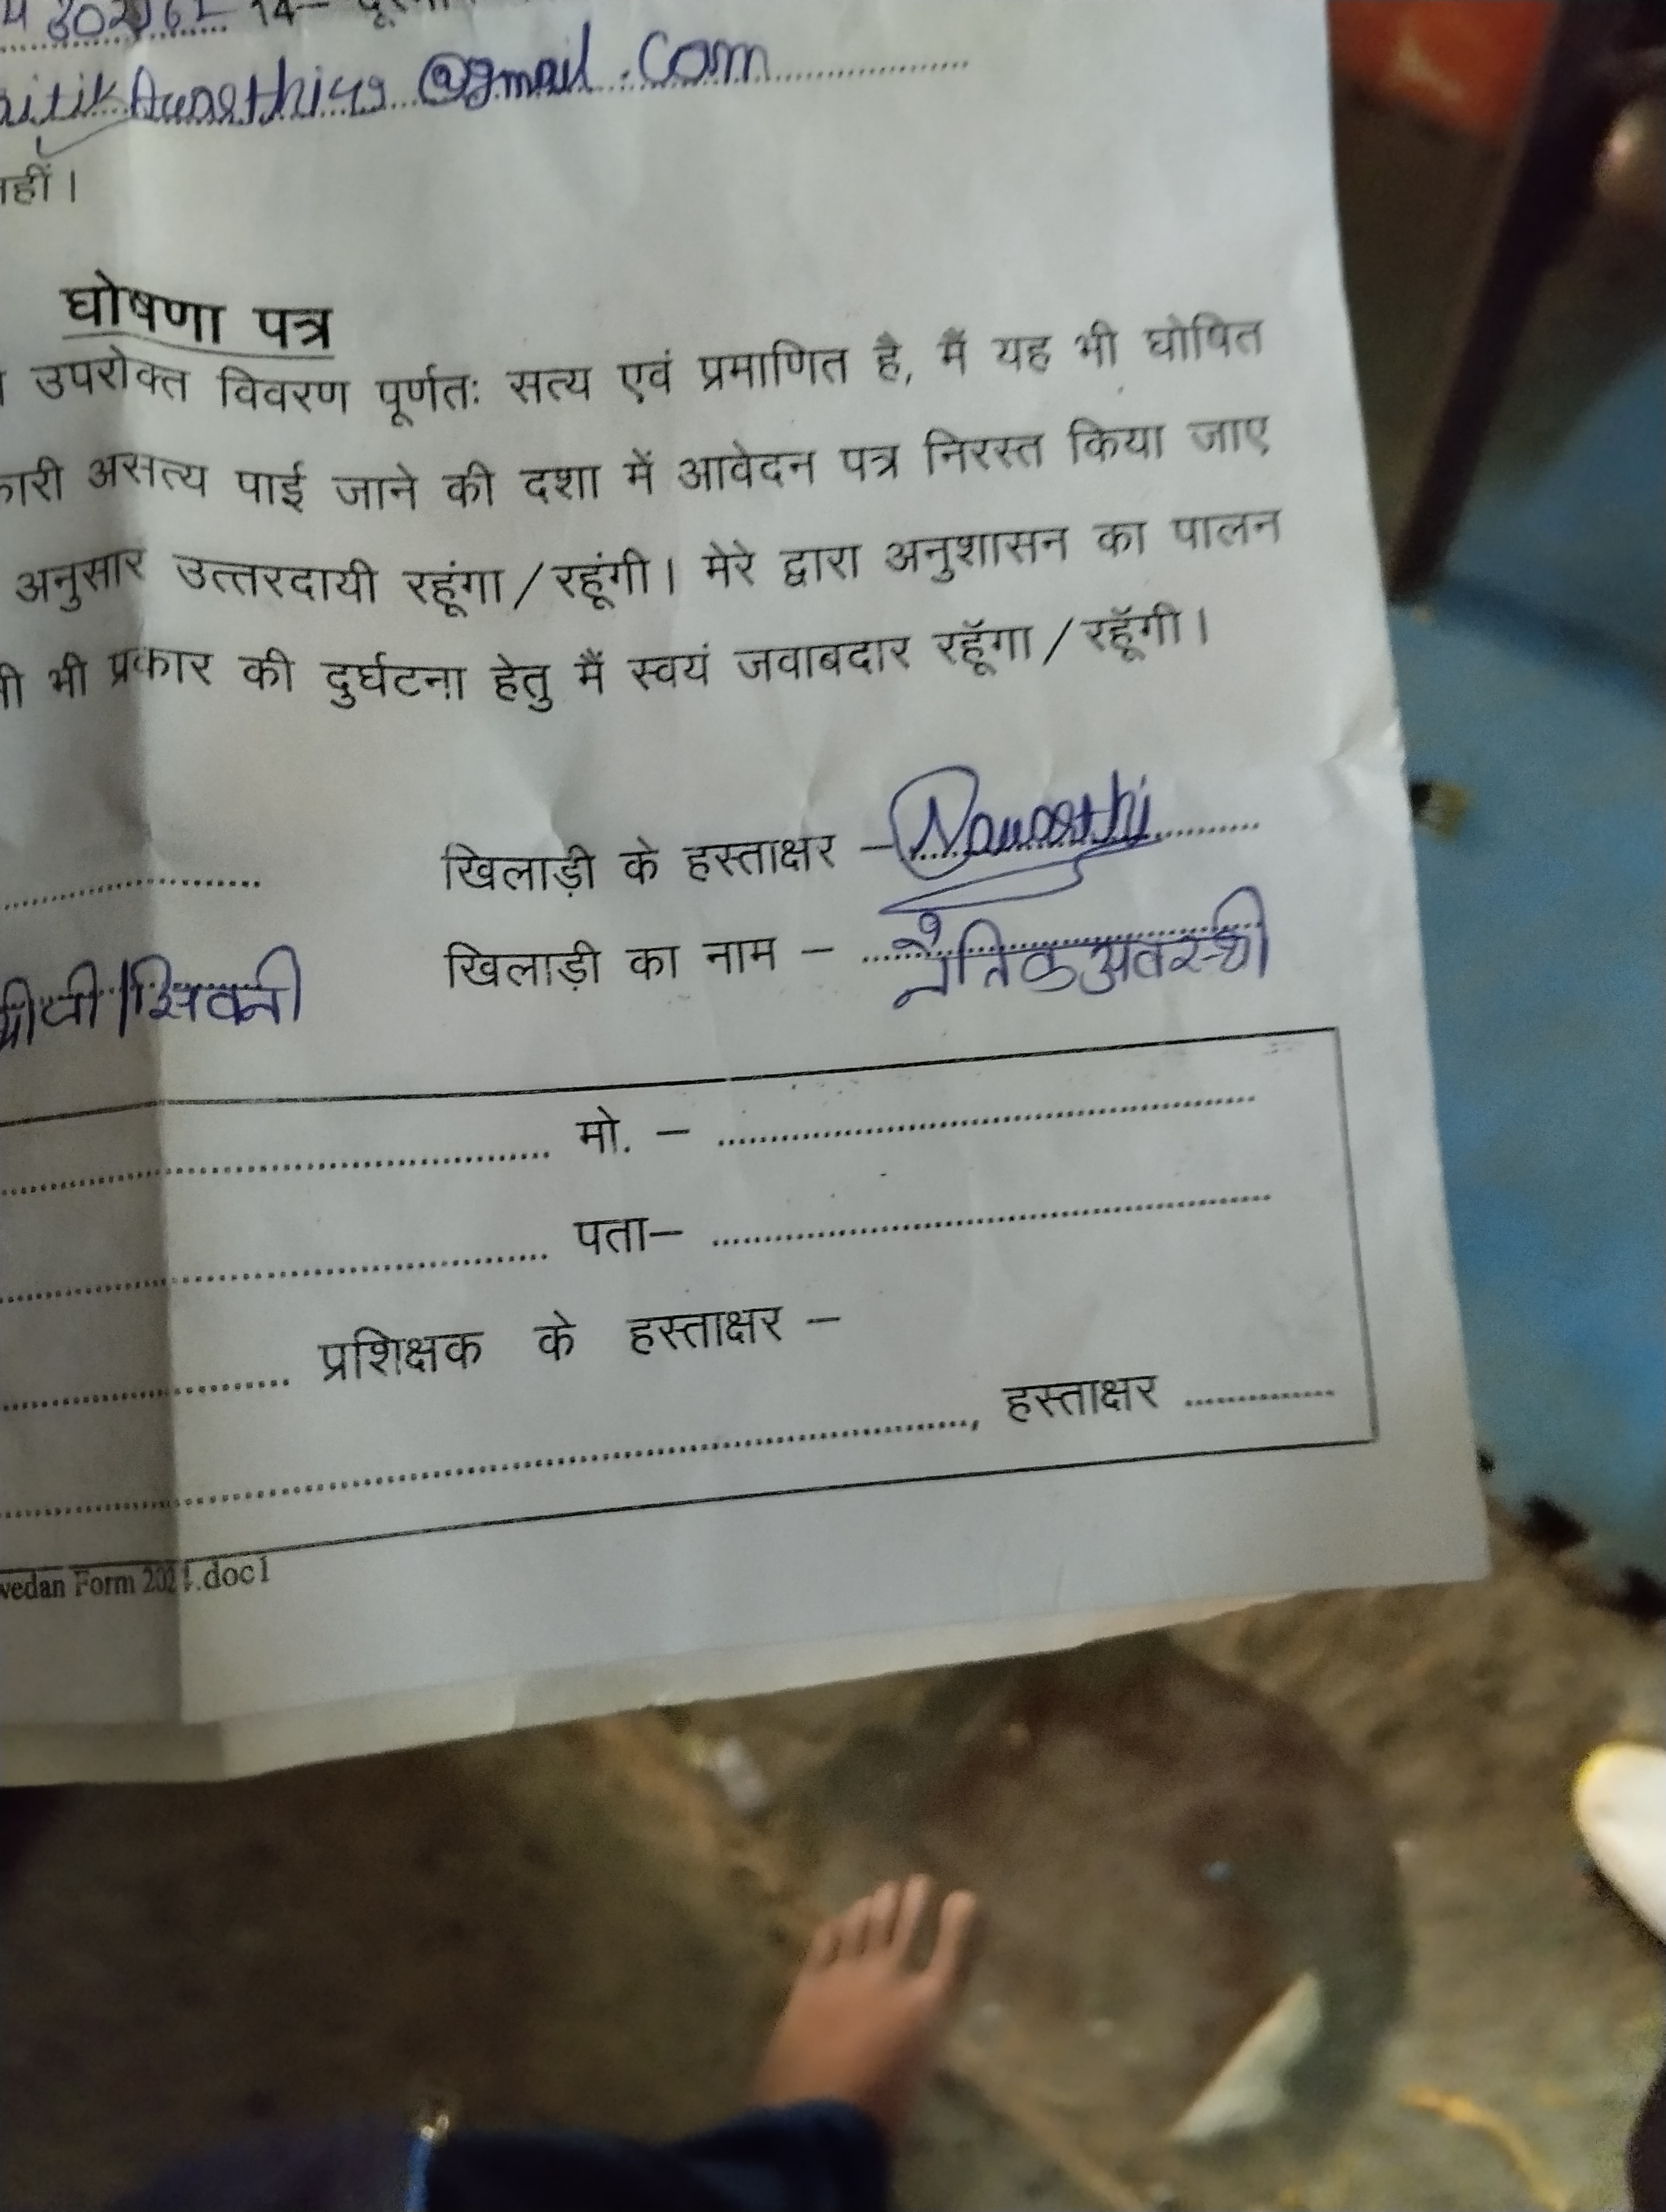 14–
@gmail.com
नहीं।
घोषणा पत्र
उपरोक्त विवरण पूर्णतः सत्य एवं प्रमाणित है, मैं यह भी घोषित
असत्य पाई जाने की दशा में आवेदन पत्र निरस्त किया जाए
अनुसार उत्तरदायी रहूंगा/रहूंगी। मेरे द्वारा अनुशासन का पालन
भी प्रकार की दुर्घटना हेतु मैं स्वयं जवाबदार रहूँगा/रहूँगी।
खिलाड़ी के हस्ताक्षर – Nawasthi
सिवनी खिलाड़ी का नाम – नैतिक अवस्थी
मो. –
पता–
प्रशिक्षक के हस्ताक्षर –
, हस्ताक्षर
wedan Form 2021.doc1